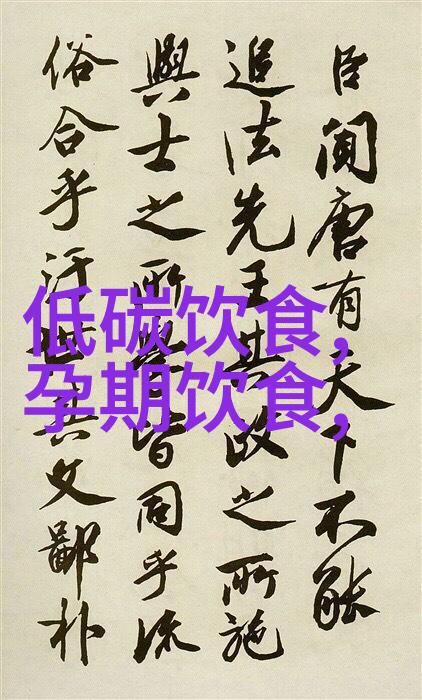 臣聞唐有天下不能
追法先王其政之所施
與士之所皆同乎流
俗合乎汙世其文鄙朴
低碳饮食,
孕期饮食,